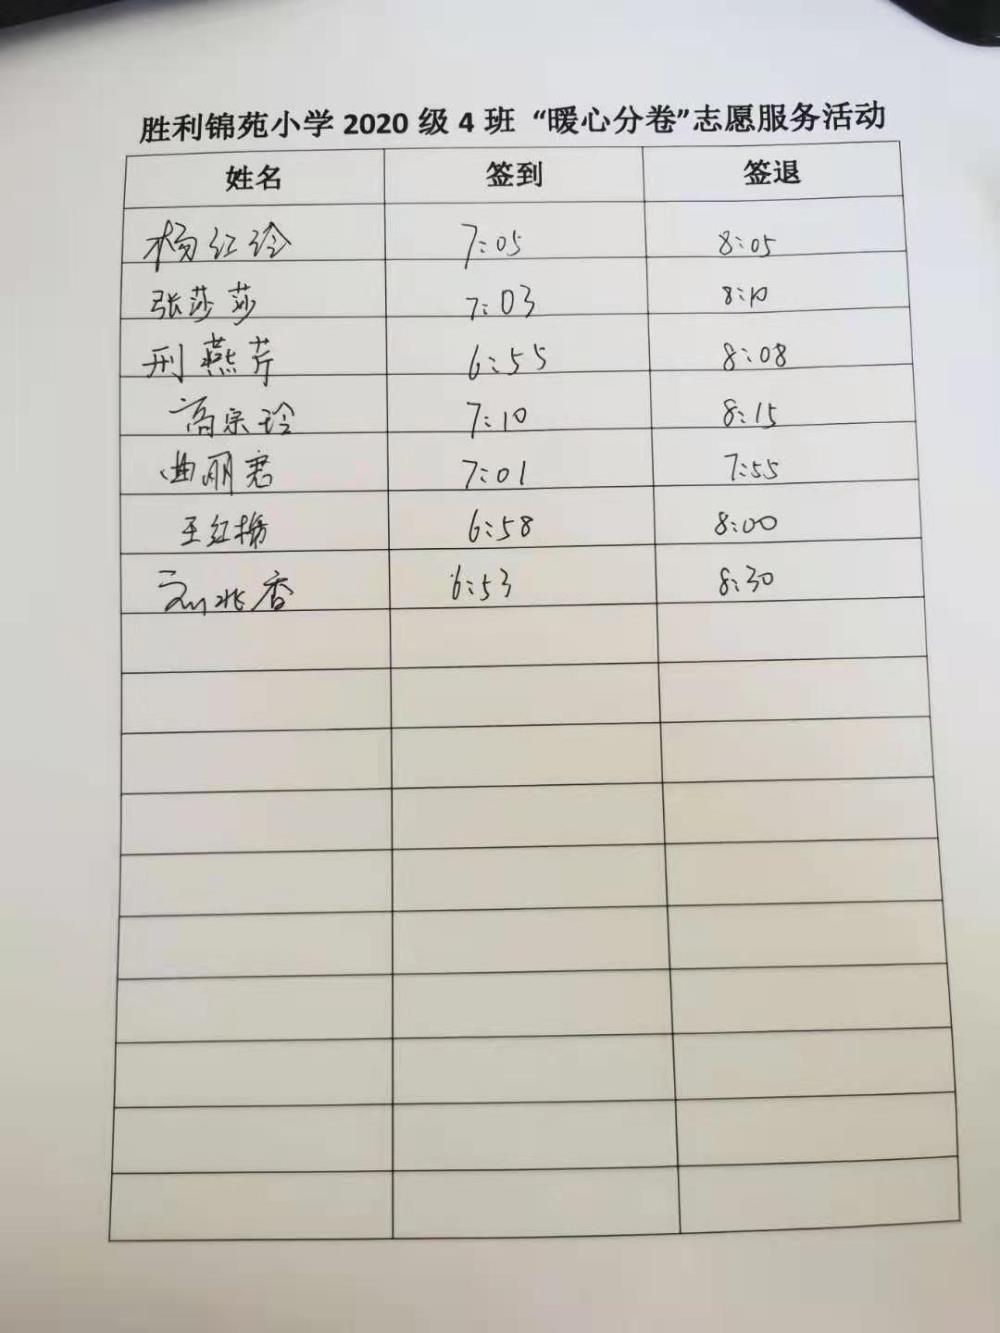 胜利锦苑小学 2020 级 4 班 “暖心分卷”志愿服务活动
姓名 签到 签退
杨红玲 7:05 8:05
张莎莎 7:03 8:10
刑燕芹 6:55 8:08
高宗玲 7:10 8:15
曲丽君 7:01 7:55
王红梅 6:58 8:00
刘兆香 6:53 8:30